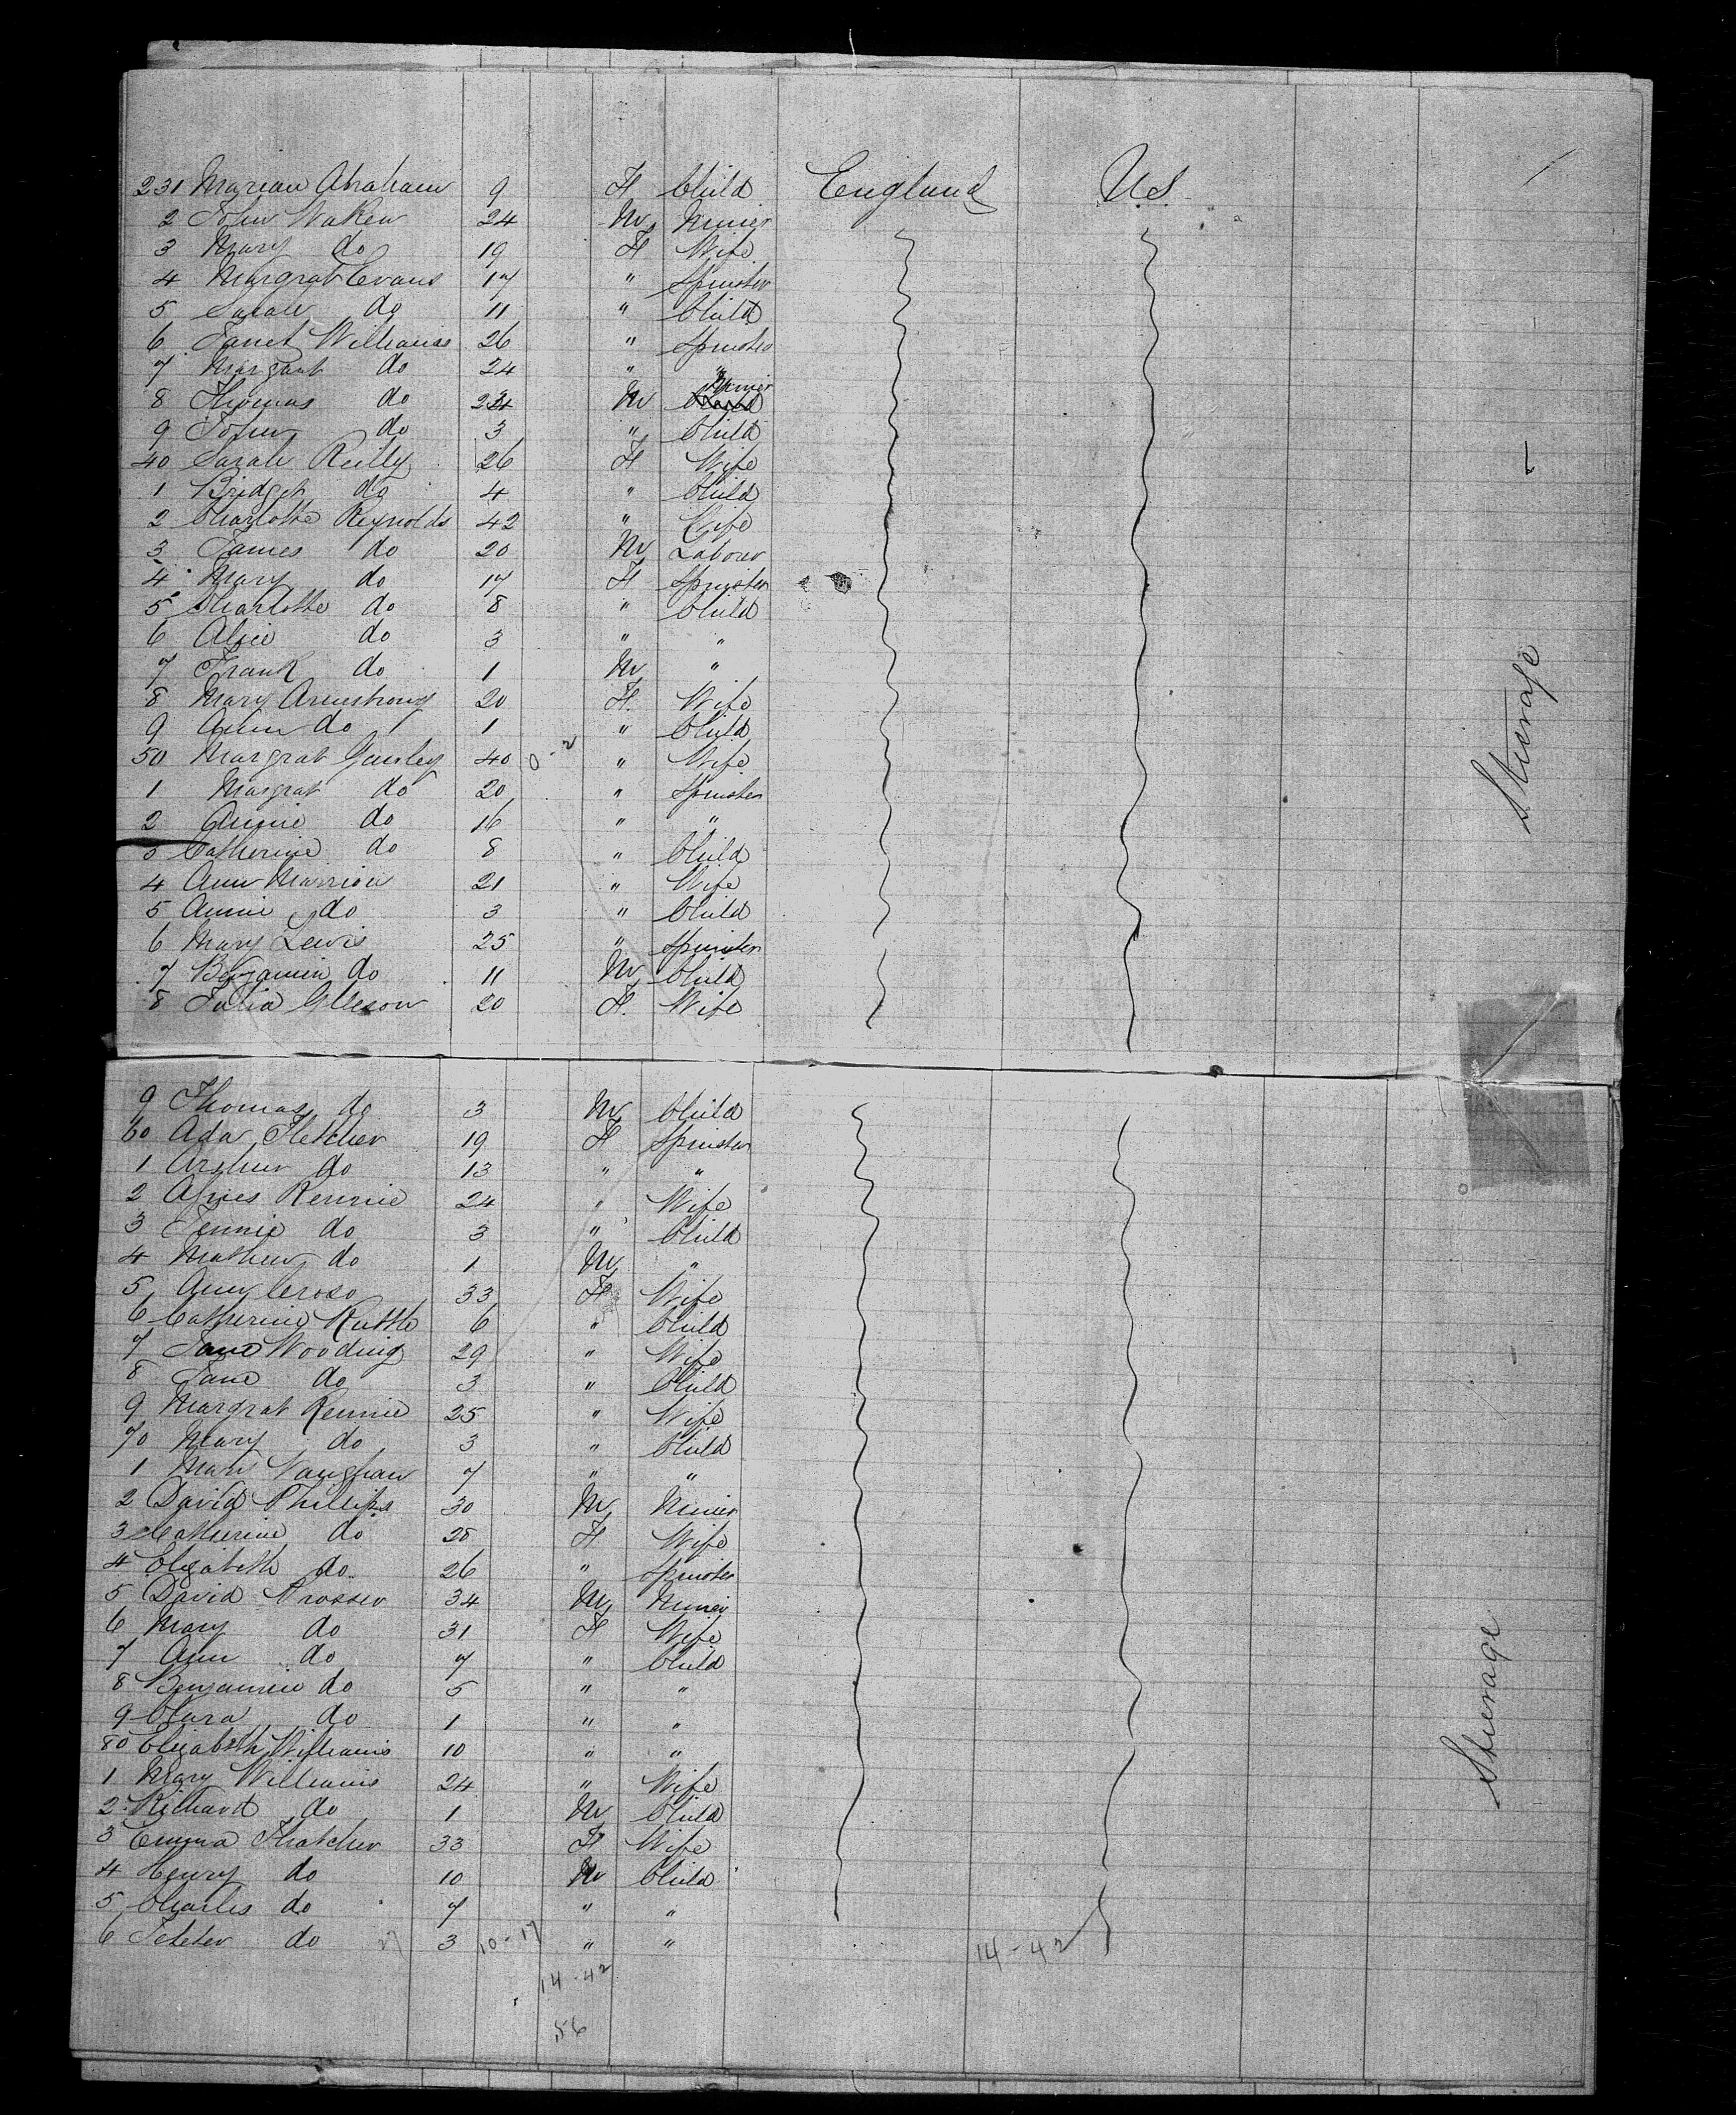 231 Marian Abraham 9 F Child England U.S.
2 John Waken 24 M Minier
3 Mary do 19 F Wife
4 Margrat Evans 17 " Spinster
5 Sarah do 11 " Child
6 Janet Williams 26 " Spinster
7 Margrat do 24 " "
8 Thomas do M Minier
9 John do 3 " Child
40 Sarah Reilly 26 F Wife
1 Bridget do 4 " Child
2 Charlotte Reynolds 42 " Wife
3 James do 20 M Labourer
4 Mary do 17 F Spinster
5 Charlotte do 8 " Child
6 Alice do 3 " "
7 Frank do 1 M "
8 Mary Armstrong 20 F. Wife
9 Ann do 1 " Child
50 Margrat 40 0-2 " Wife
1 Margrat do 20 " Spinster
2 Annie do 16 " "
3 Catherine do 8 " Child
4 Ann Marrion 21 " Wife
5 Annie do 3 " Child
6 Mary Lewis 25 " Spinster
7 Benjamin do 11 M Child
8 Julia Gleeson 20 F. Wife
9 Thomas do 3 M Child
60 Ada Fletcher 19 F Spinster
1 Arthur do 13 " "
2 Agnes Rennie 24 " Wife
3 Jennie do 3 " Child
4 Mathew do 1 M "
5 Ann 33 F Wife
6 Catherine Ruttle 6 " Child
7 Jane Wooding 29 " Wife
8 Jane do 3 " Child
9 Margrat Rennie 25 " Wife
70 Mary do 3 " Child
1 Mary Vaughan 7 " "
2 David Phillips 30 M Minier
3 Catherine do 28 F Wife
4 Elizabeth do 26 " Spinster
5 David Prosser 34 M Minier
6 Mary do 31 F Wife
7 Ann do 7 " Child
8 Benjamin do 5 " "
9 Clara do 1 " "
80 Elizabeth Williams 10 " "
1 Mary Williams 24 " Wife
2 Richard do 1 M Child
3 Emma Thatcher 33 F Wife
4 Henry do 10 M Child
5 Charles do 7 " "
6 do 27 3 10-17 " " 14-42
14-42
56
Steerage
Steerage